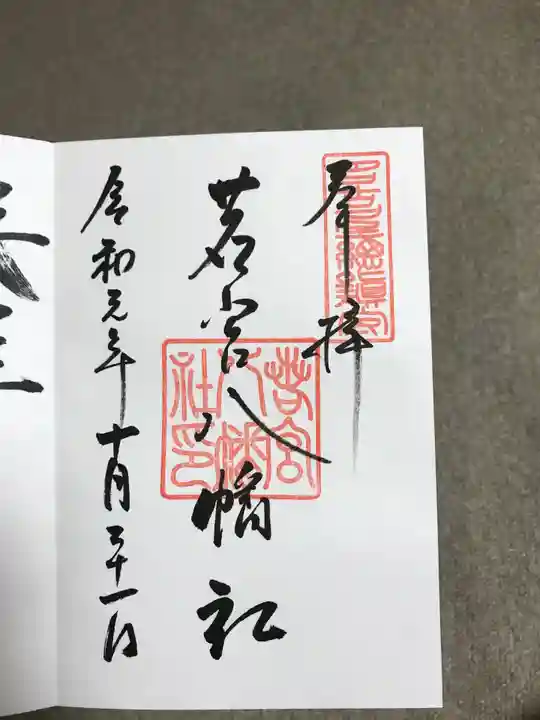 奉拝
若宮八幡社
若宮八幡社印
令和元年十月三十一日